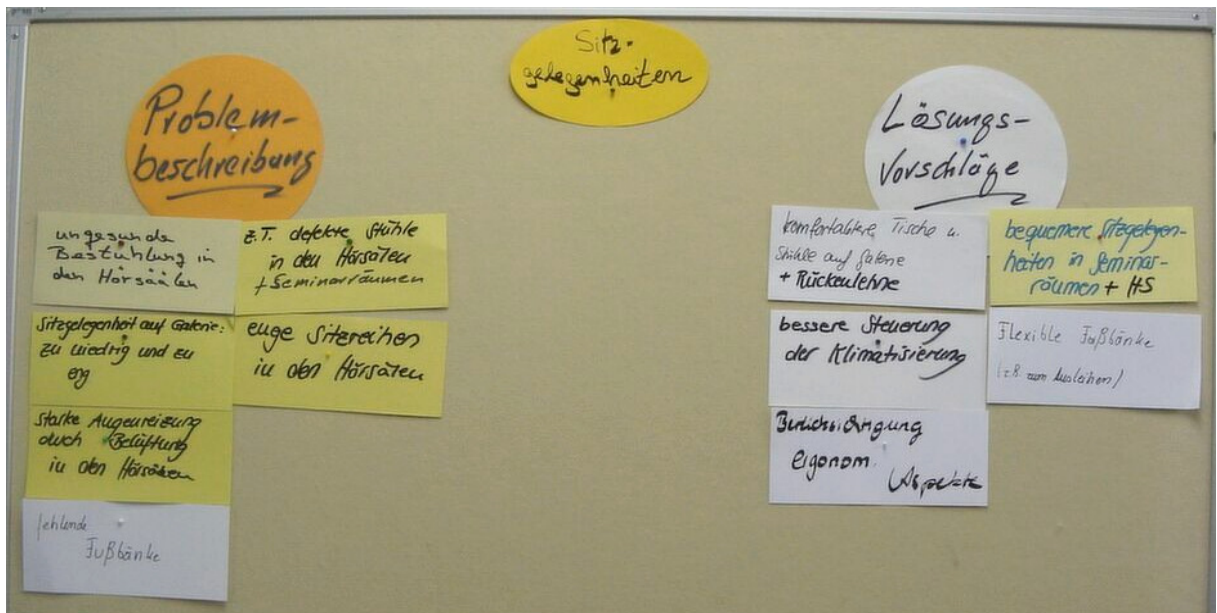 Sitz-
gelegenheiten
Problem-
beschreibung
ungesunde
Bestuhlung in
den Hörsäälen
z.T. defekte Stühle
in den Hörsälen
+ Seminarräumen
Sitzgelegenheit auf Galerie:
zu niedrig und zu
eng
enge Sitzreihen
in den Hörsälen
starke Augenreizung
durch Belüftung
in den Hörsälen
fehlende
Fußbänke
Lösungs-
Vorschläge
komfortablere Tische u.
Stühle auf Galerie
+ Rückenlehne
bequemere Sitzgelegen-
heiten in Seminar-
räumen + HS
bessere Steuerung
der Klimatisierung
Flexible Fußbänke
(z.B. zum Ausleihen)
Berücksichtigung
ergonom.
Aspekte